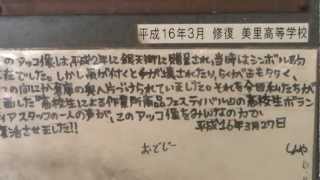 平成16年3月 修復 美里高等学校
のアッコ像は、平成2年に銀天街に贈呈され、当時はシンボル的
在でした。しかし雨が付くと手が壊されたり、らくがきもひどく、
の間にか倉庫の奥へ片づけられていました。それを今回私たちが
画した"高校生による作業所商品フェスティバル"の高校生ボラン
ィアスタッフの一人の声が、このアッコ像をみんなの力で
活させました!!
平成16年3月27日
おでじー
しんや